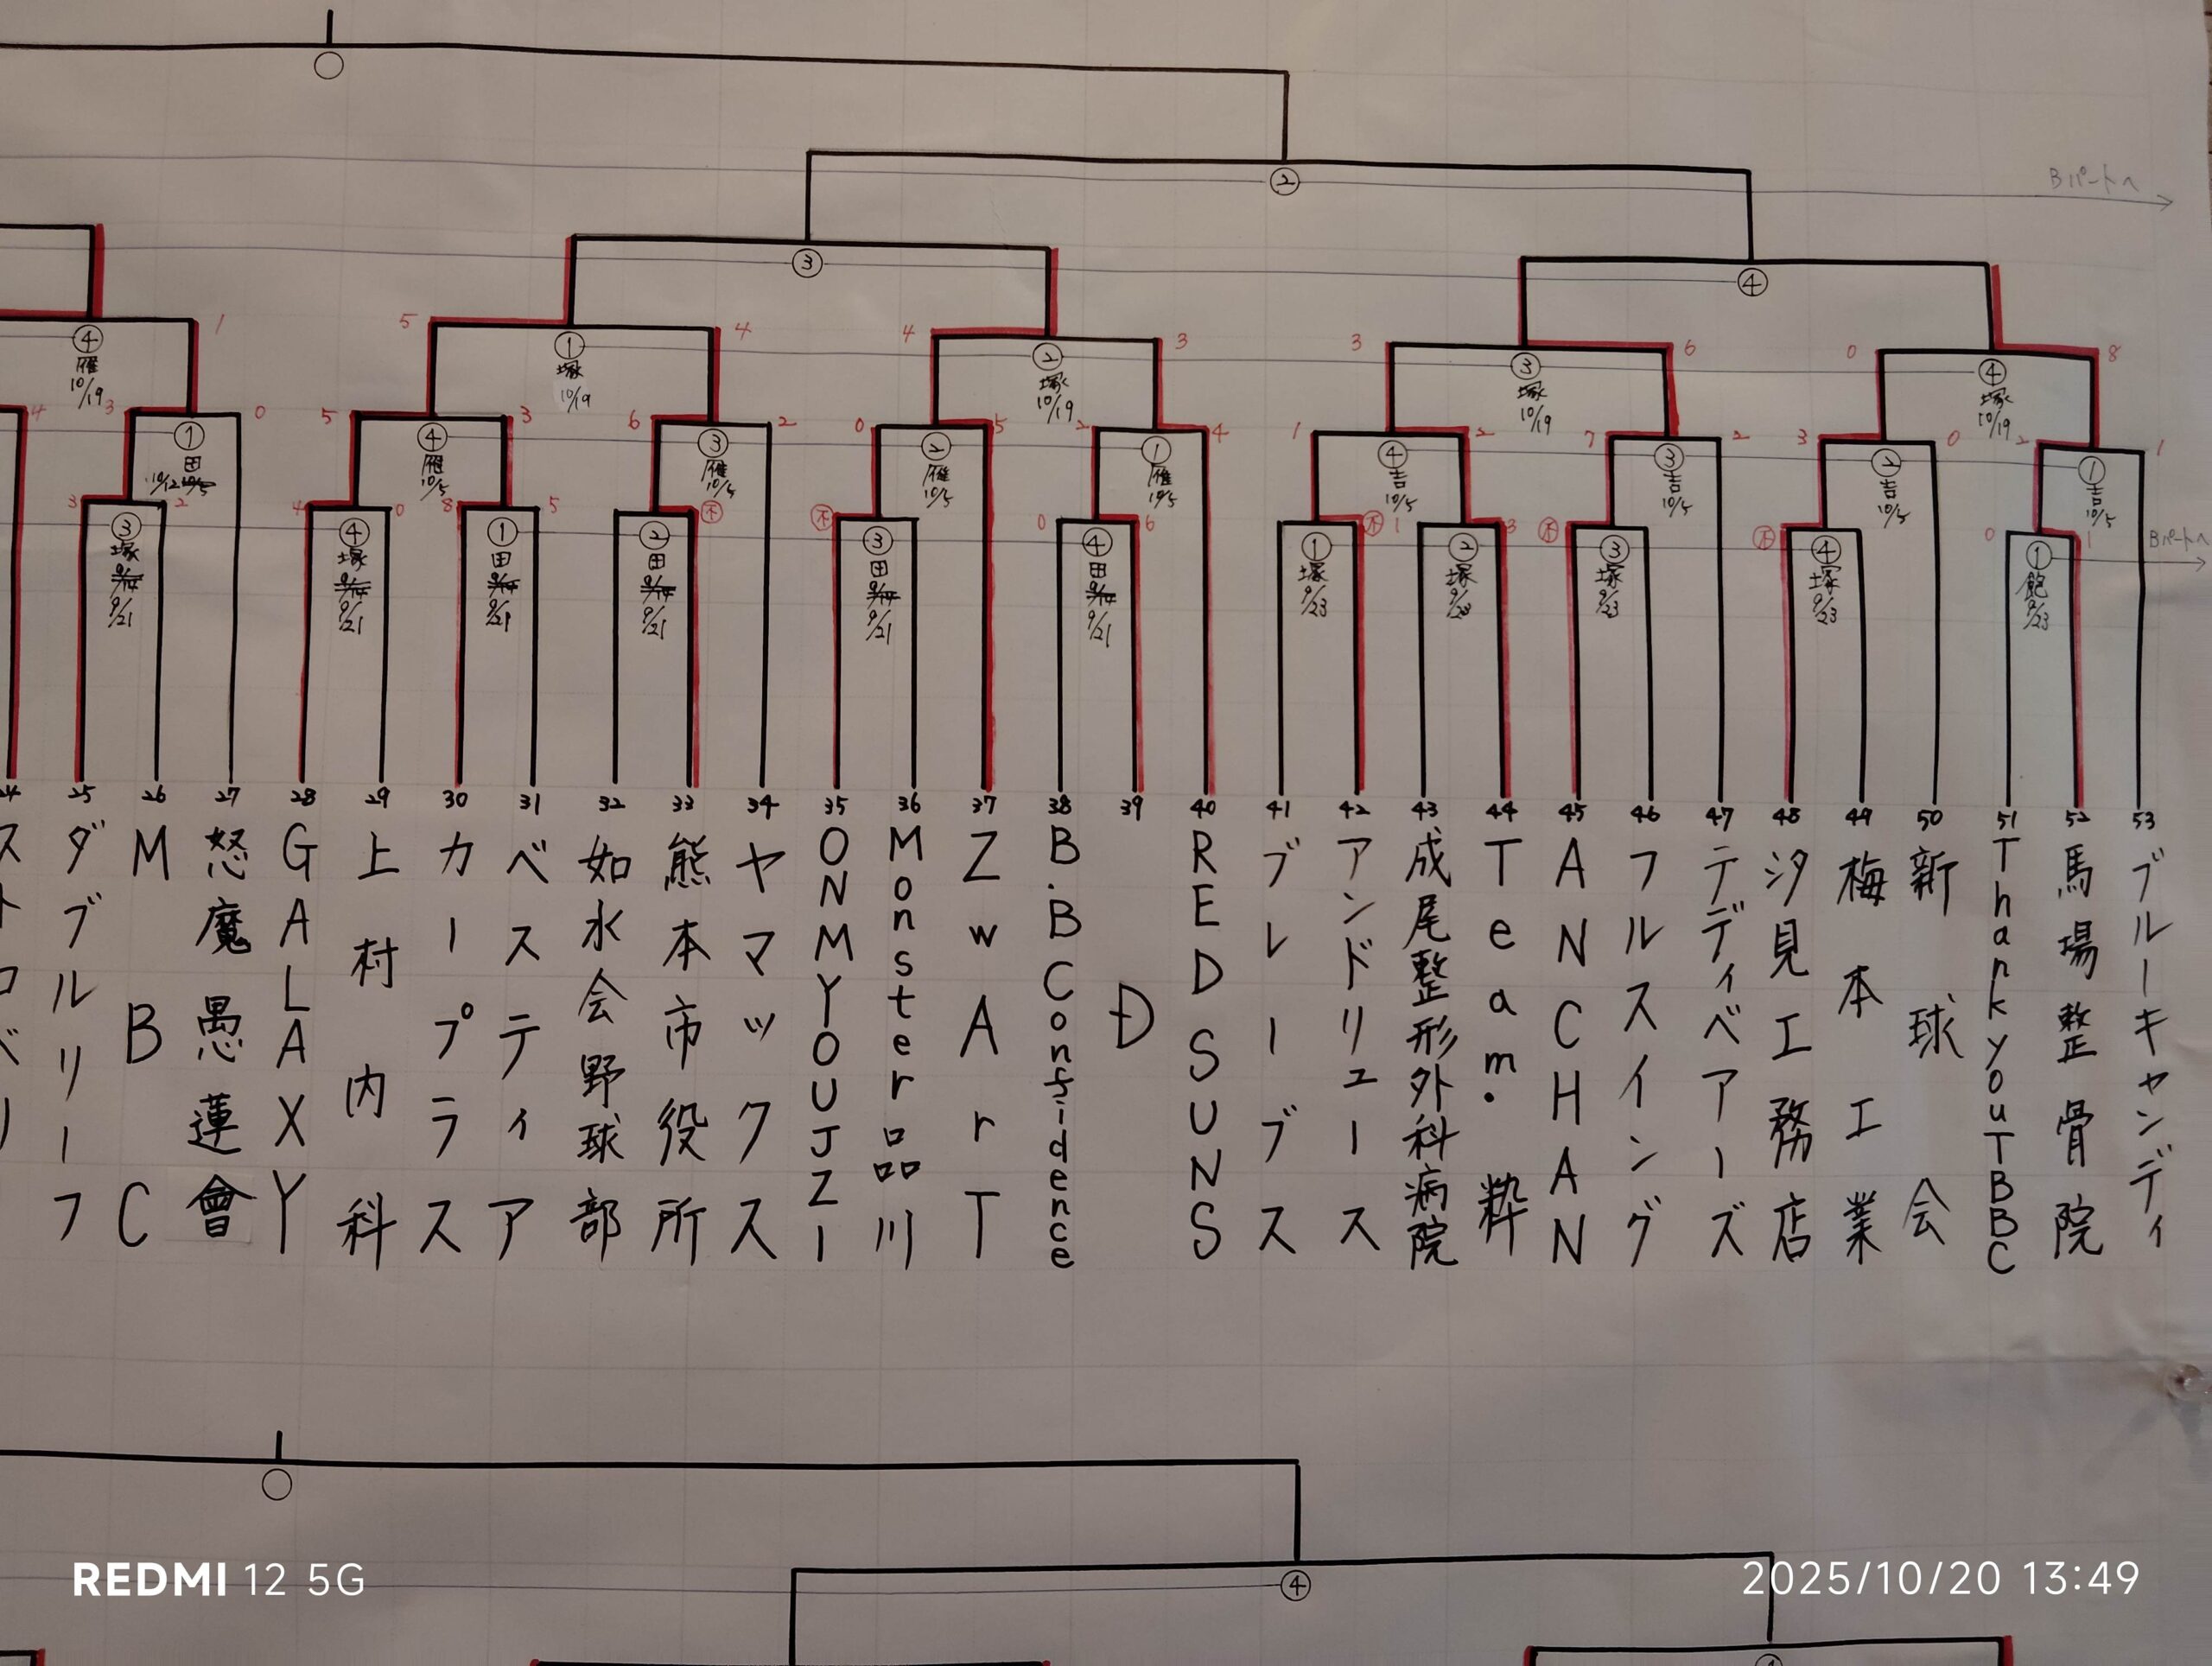 ②
Bパートへ
③
④
5
4
4
3
3
6
0
8
1
④
雁
10/19
①
塚
10/19
②
塚
10/19
③
塚
10/19
④
塚
10/19
4
3
0
5
3
6
2
0
5
2
4
1
2
7
2
3
0
2
1
①
田
10/12
④
雁
10/5
③
雁
10/5
②
雁
10/5
①
雁
10/5
④
吉
10/5
③
吉
10/5
②
吉
10/5
①
吉
10/5
3
2
4
0
8
5
不
不
0
6
不
1
3
不
不
0
1
Bパートへ
③
塚
9/14
9/21
④
塚
9/14
9/21
①
田
9/14
9/21
②
田
9/14
9/21
③
田
9/14
9/21
④
田
9/14
9/21
①
塚
9/23
②
塚
9/23
③
塚
9/23
④
塚
9/23
①
飽
9/23
24
25 ダブルリーフ
26 MBC
27 怒魔愚蓮會
28 GALAXY
29 上村内科
30 カープラス
31 ベスティア
32 如水会野球部
33 熊本市役所
34 ヤマックス
35 ONMYOUJZI
36 Monster品川
37 ZwArT
38 B.BConfidence
39 Đ
40 REDSUNS
41 ブレーブス
42 アンドリュース
43 成尾整形外科病院
44 Team・粋
45 ANCHAN
46 フルスイング
47 テディベアーズ
48 汐見工務店
49 梅本工業
50 新球会
51 ThankyouTBBC
52 馬場整骨院
53 ブルーキャンディ
④
REDMI 12 5G
2025/10/20 13:49